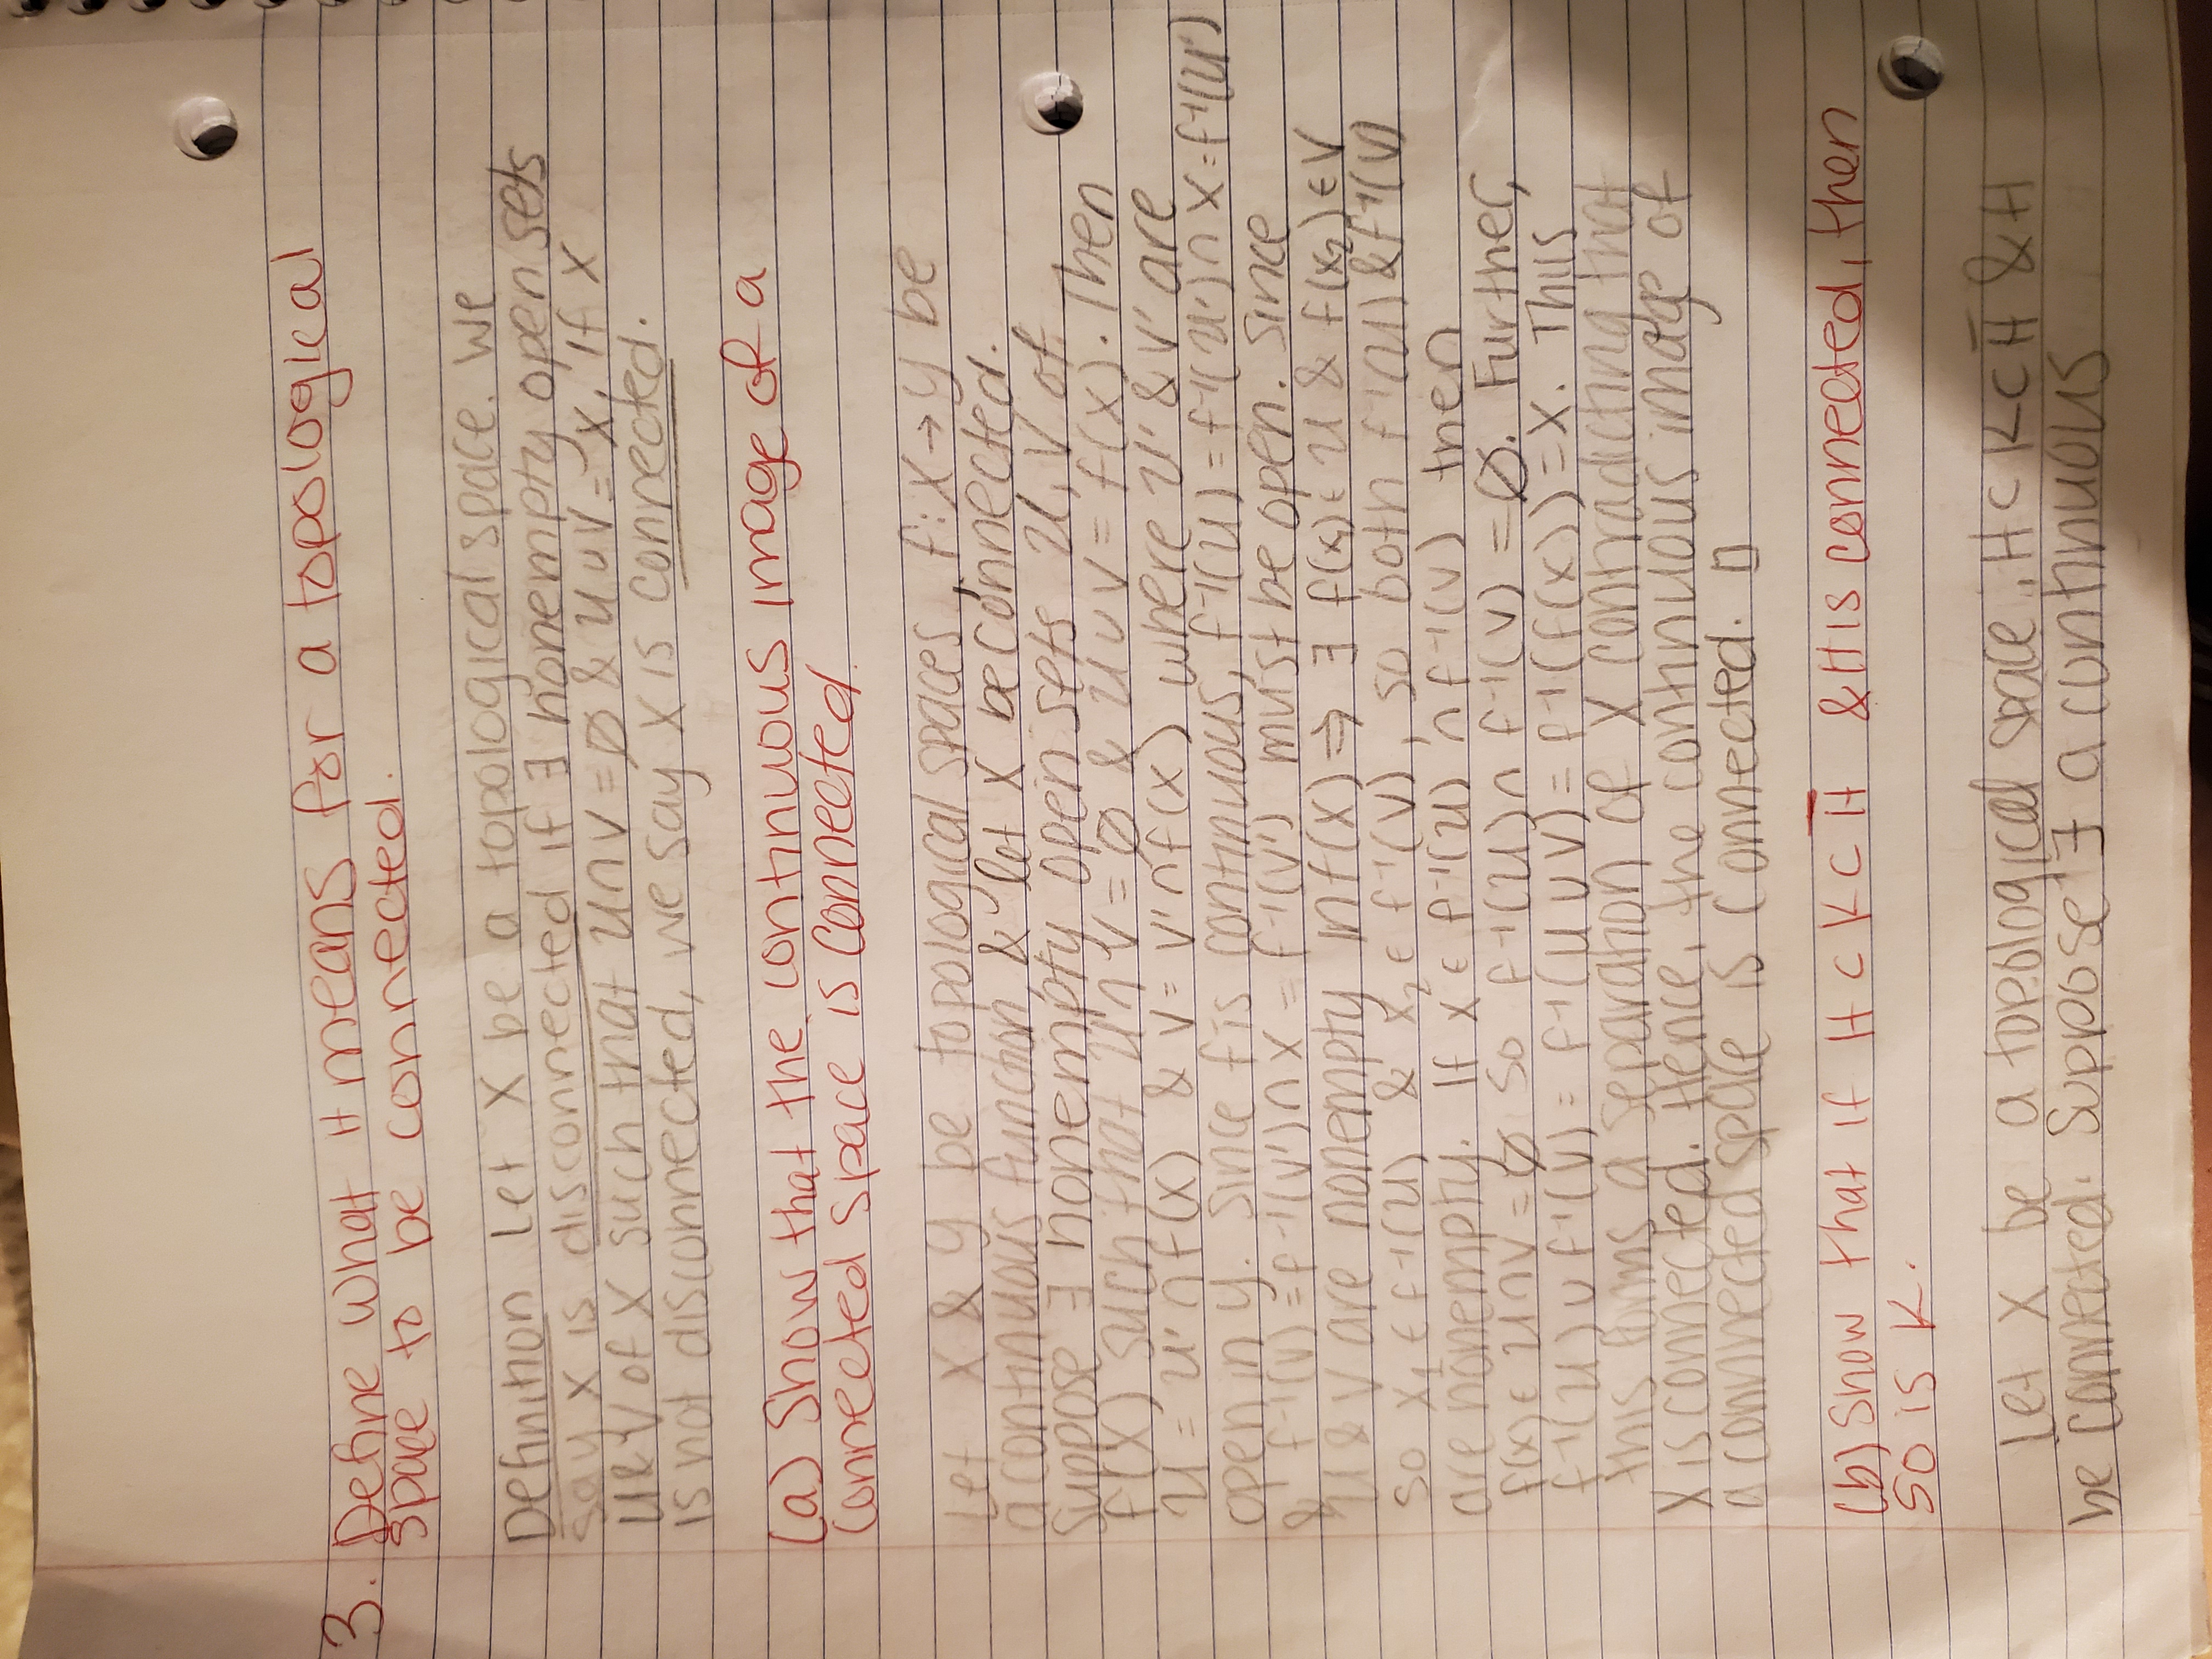 3. Define what it means for a topological
space to be connected.
Definition Let X be a topological space. We
say X is disconnected if ∃ nonempty open sets
U & V of X such that U∩V = ∅ & U∪V = X. If X
is not disconnected, we say X is connected.
(a) Show that the continuous image of a
connected space is connected.
Let X & Y be topological spaces, f: X→Y be
a continuous function, & let X be connected.
Suppose ∃ nonempty open sets U, V of
f(X) such that U∩V = ∅ & U∪V = f(X). Then
U = U' ∩ f(X) & V = V' ∩ f(X) where U' & V' are
open in Y. Since f is continuous, f⁻¹(U) = f⁻¹(U') ∩ X = f⁻¹(U')
& f⁻¹(V) = f⁻¹(V') ∩ X = f⁻¹(V') must be open. Since
U & V are nonempty in f(X) ⇒ ∃ f(x₁) ∈ U & f(x₂) ∈ V
so x₁ ∈ f⁻¹(U) & x₂ ∈ f⁻¹(V), so both f⁻¹(U) & f⁻¹(V)
are nonempty. If x ∈ f⁻¹(U) ∩ f⁻¹(V) then
f(x) ∈ U∩V = ∅ so f⁻¹(U) ∩ f⁻¹(V) = ∅. Further,
f⁻¹(U) ∪ f⁻¹(V) = f⁻¹(U∪V) = f⁻¹(f(X)) = X. Thus
this forms a separation of X contradicting that
X is connected. Hence, the continuous image of
a connected space is connected. □
(b) Show that if H ⊂ K ⊂ H̅ & H is connected, then
so is K.
Let X be a topological space, H ⊂ K ⊂ H̅ & H
be connected. Suppose ∃ a continuous